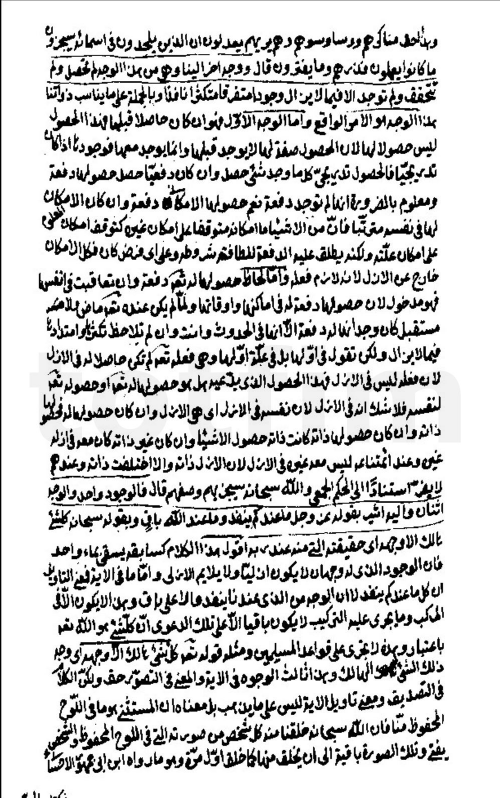 وبهذا لحظ مناكرهم ووساوسهم وهم بربهم يعدلون ان الذين يلحدون في اسمائه سيجزون
ما كانوا يعملون فذرهم وما يفترون قال ووجه اخر الينا وهو من هذا الوجه لم تحصل ولم
تتحقق ولم توجد الا فيما لا يزال وجودا متفرقا متكثرا نافذا وبالجملة على ما يناسب ذواتنا
بهذا الوجه هو الامر الواقع واما الوجه الاول فهو ان كان حاصلا قبلها فهذا الحصول
ليس حصولا لها لان الحصول صفة لها لا يوجد قبلها وانما يوجد معها فوجود اذا كان
تدريجيا فالحصول تدريجي كل ما وجد شئ حصل وان كان دفعيا حصل حصولها دفعة
ومعلوم بالضرورة انها لم توجد دفعة نعم حصولها الامكاني دفعة وان كان الامكان
لها في نفسه مترتبا فان من الاشياء ما امكانه متوقفا على امكان غيره كتوقف امكان
على امكان علته ولكنه يطلق عليه الدفعة للطافته وعلى اي فرض كان فكل الامكان
خارج عن الازل لانه لازم فعله واما لحاظ حصولها له تعالى دفعة وان تعاقبت في انفسها
فهو مدخول لان حصولها دفعة له في اماكنها واوقاتها ولما لم يكن عنده تعالى ماض ولا
مستقبل كان وجدانها له دفعة الا انها في الحدوث وانت وان لم تلاحظ تكثرا وامتدادا
فيما لا يزال ولكن تقول في اولها بل في علة اولها وهي فعله تعالى لم تكن حاصلة له في الازل
لان فعله ليس في الازل فهذا الحصول الذي يدعيه هل هو حصولها له تعالى او حصوله تعالى
لنفسه فلا شك انه في الازل لان نفسه في الازل اي هي الازل وان كان حصولها له فحصولها
ذاته وان كان حصولها ذاته كانت ذاته حصول الاشياء وان كان غير ذاته كان معه في ازله
غيره وعند ائمتنا ليس معه غيره في الازل لان الازل ذاته والا اختلفت ذاته وعندهم
لا يضر استنادا الى الحكم الجمعي والله سبحانه سيجزيهم وصفهم قال فالوجود واحد والوجه
اثنان واليه اشير بقوله عز وجل ما عندكم ينفد وما عند الله باق وبقوله سبحانه كل شئ
هالك الا وجهه اي حقيقته التي منه عنده اقول هذا الكلام كسابقه يسقى بماء واحد
فان الوجود الذي له وجهان لا يكون ازليا ولا يلايم الازلي واما ما في الاية فيعني
ان كل ما عندكم ينفد لا ان الوجه من الذي عندنا ينفد والاعلى باق وهذا لا يكون الا في
المركب وما يجري عليه التركيب لا يكون باقيا الا على تلك الدعوى ان كل شئ هو الله تعالى
باعتبار وهذا لا يجري على قواعد المسلمين ومثله قوله تعالى كل شئ هالك الا وجهه اي وجه
ذلك الشئ الهالك وهذا ثالث الوجوه في الاية والمعنى في التصور حق ولكن الكلام
في التصديق ومعنى تاويل الاية ليس على ما يذهب بل معناه ان المستثنى هو ما في اللوح
المحفوظ منا فان الله سبحانه خلقنا منه كل شخص من صورته التي في اللوح المحفوظ والشخص
يفنى وتلك الصورة باقية الى ان يخلق منها كما خلق اول مرة وهو ما رواه ابن ابي جمهور الاحسائي